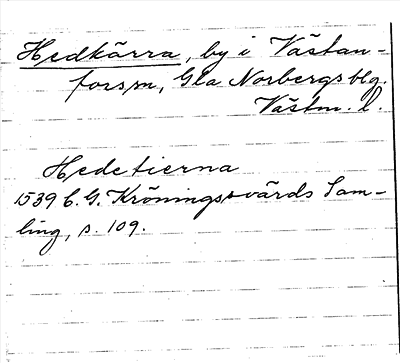 Hedkärra, by i Västan-
fors sn, Gla Norbergs blg.
Västm. l.
Hedetierna
1539 C. G. Kröningssvärds Sam-
ling, s. 109.